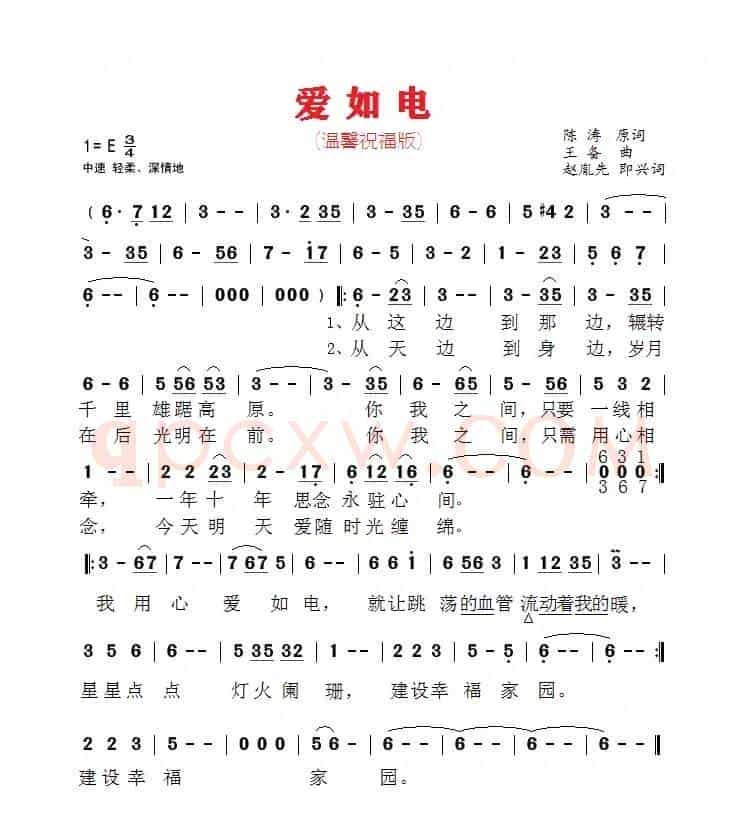 爱如电
(温馨祝福版)
1=E 3/4
中速 轻柔、深情地
陈涛 原词
王备 曲
赵胤先 即兴词
( 6· 7 12 | 3 - - | 3· 2 35 | 3 - 35 | 6 - 6 | 5 #4 2 | 3 - - |
3 - 35 | 6 - 56 | 7 - 17 | 6 - 5 | 3 - 2 | 1 - 23 | 5 6 7 |
6 - - | 6 - - | 000 | 000 ) |: 6 - 23 | 3 - - | 3 - 35 | 3 - 35 |
1、从这边到那边,辗转
2、从天边到身边,岁月
6 - 6 | 5 56 53 | 3 - - | 3 - 35 | 6 - 65 | 5 - 56 | 5 3 2 |
千里雄踞高原。你我之间,只要一线相
在后光明在前。你我之间,只需用心相
qpcxw.com
1 - - | 2 2 23 | 2 - 17 | 6 12 16 | 6 - - | 6 - - | 000 :|
6 3 1
3 6 7
牵,一年十年思念永驻心间。
念,今天明天爱随时光缠绵。
|: 3 - 67 | 7 - - | 7 67 5 | 6 - - | 6 6 1 | 6 56 3 | 1 12 35 | 3 - - |
我用心爱如电,就让跳荡的血管流动着我的暖,
3 5 6 | 6 - - | 5 35 32 | 1 - - | 2 2 3 | 5 - 5 | 6 - - | 6 - - :|
星星点点灯火阑珊,建设幸福家园。
2 2 3 | 5 - - | 000 | 56 - | 6 - - | 6 - - | 6 - - | 6 - - ||
建设幸福家园。